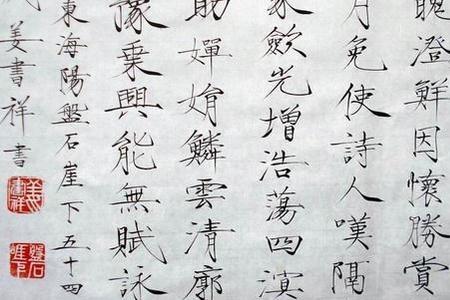 魄澄鮮因懷勝賞
月免使詩人嘆隔
斂光增浩蕩四溟
助嬋娟鱗雲清廓
豫乘興能無賦詠
東海陽盤石崖下五十四
姜書祥書
姜書祥